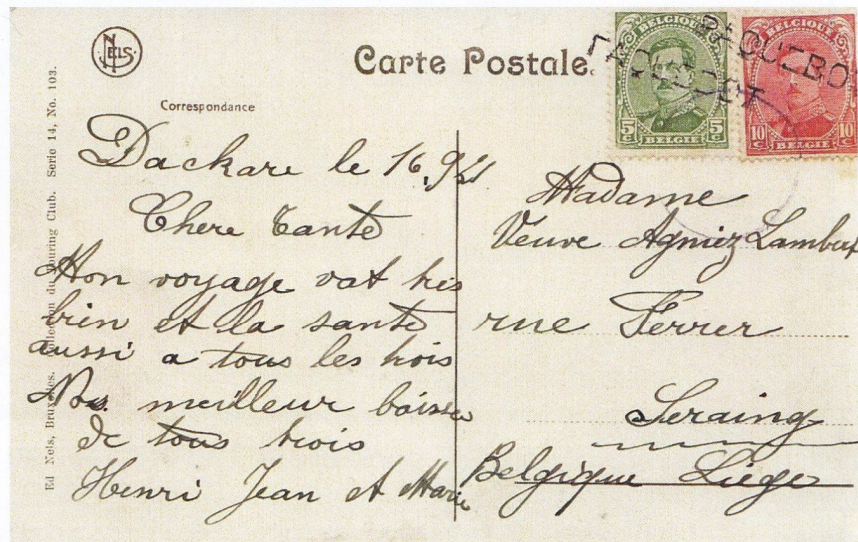 NELS
Carte Postale.
Correspondance
Ed Nels, Bruxelles. Collection du Touring Club. Serie 14, No. 103.
Dackare le 16.9/21
Chere tante
Mon voyage vat très
bien et la santé
aussi a tous les trois
Nos meilleur baiser
de tous trois
Henri Jean et Marie
BELGIQUE
5 C 5 C
BELGIE
BELGIQUE
10 C 10 C
BELGIE
PAQUEBOT
PAQUEBO
Madame
Veuve Agniez Lambert
rue Ferrer
Seraing
Belgique Liége